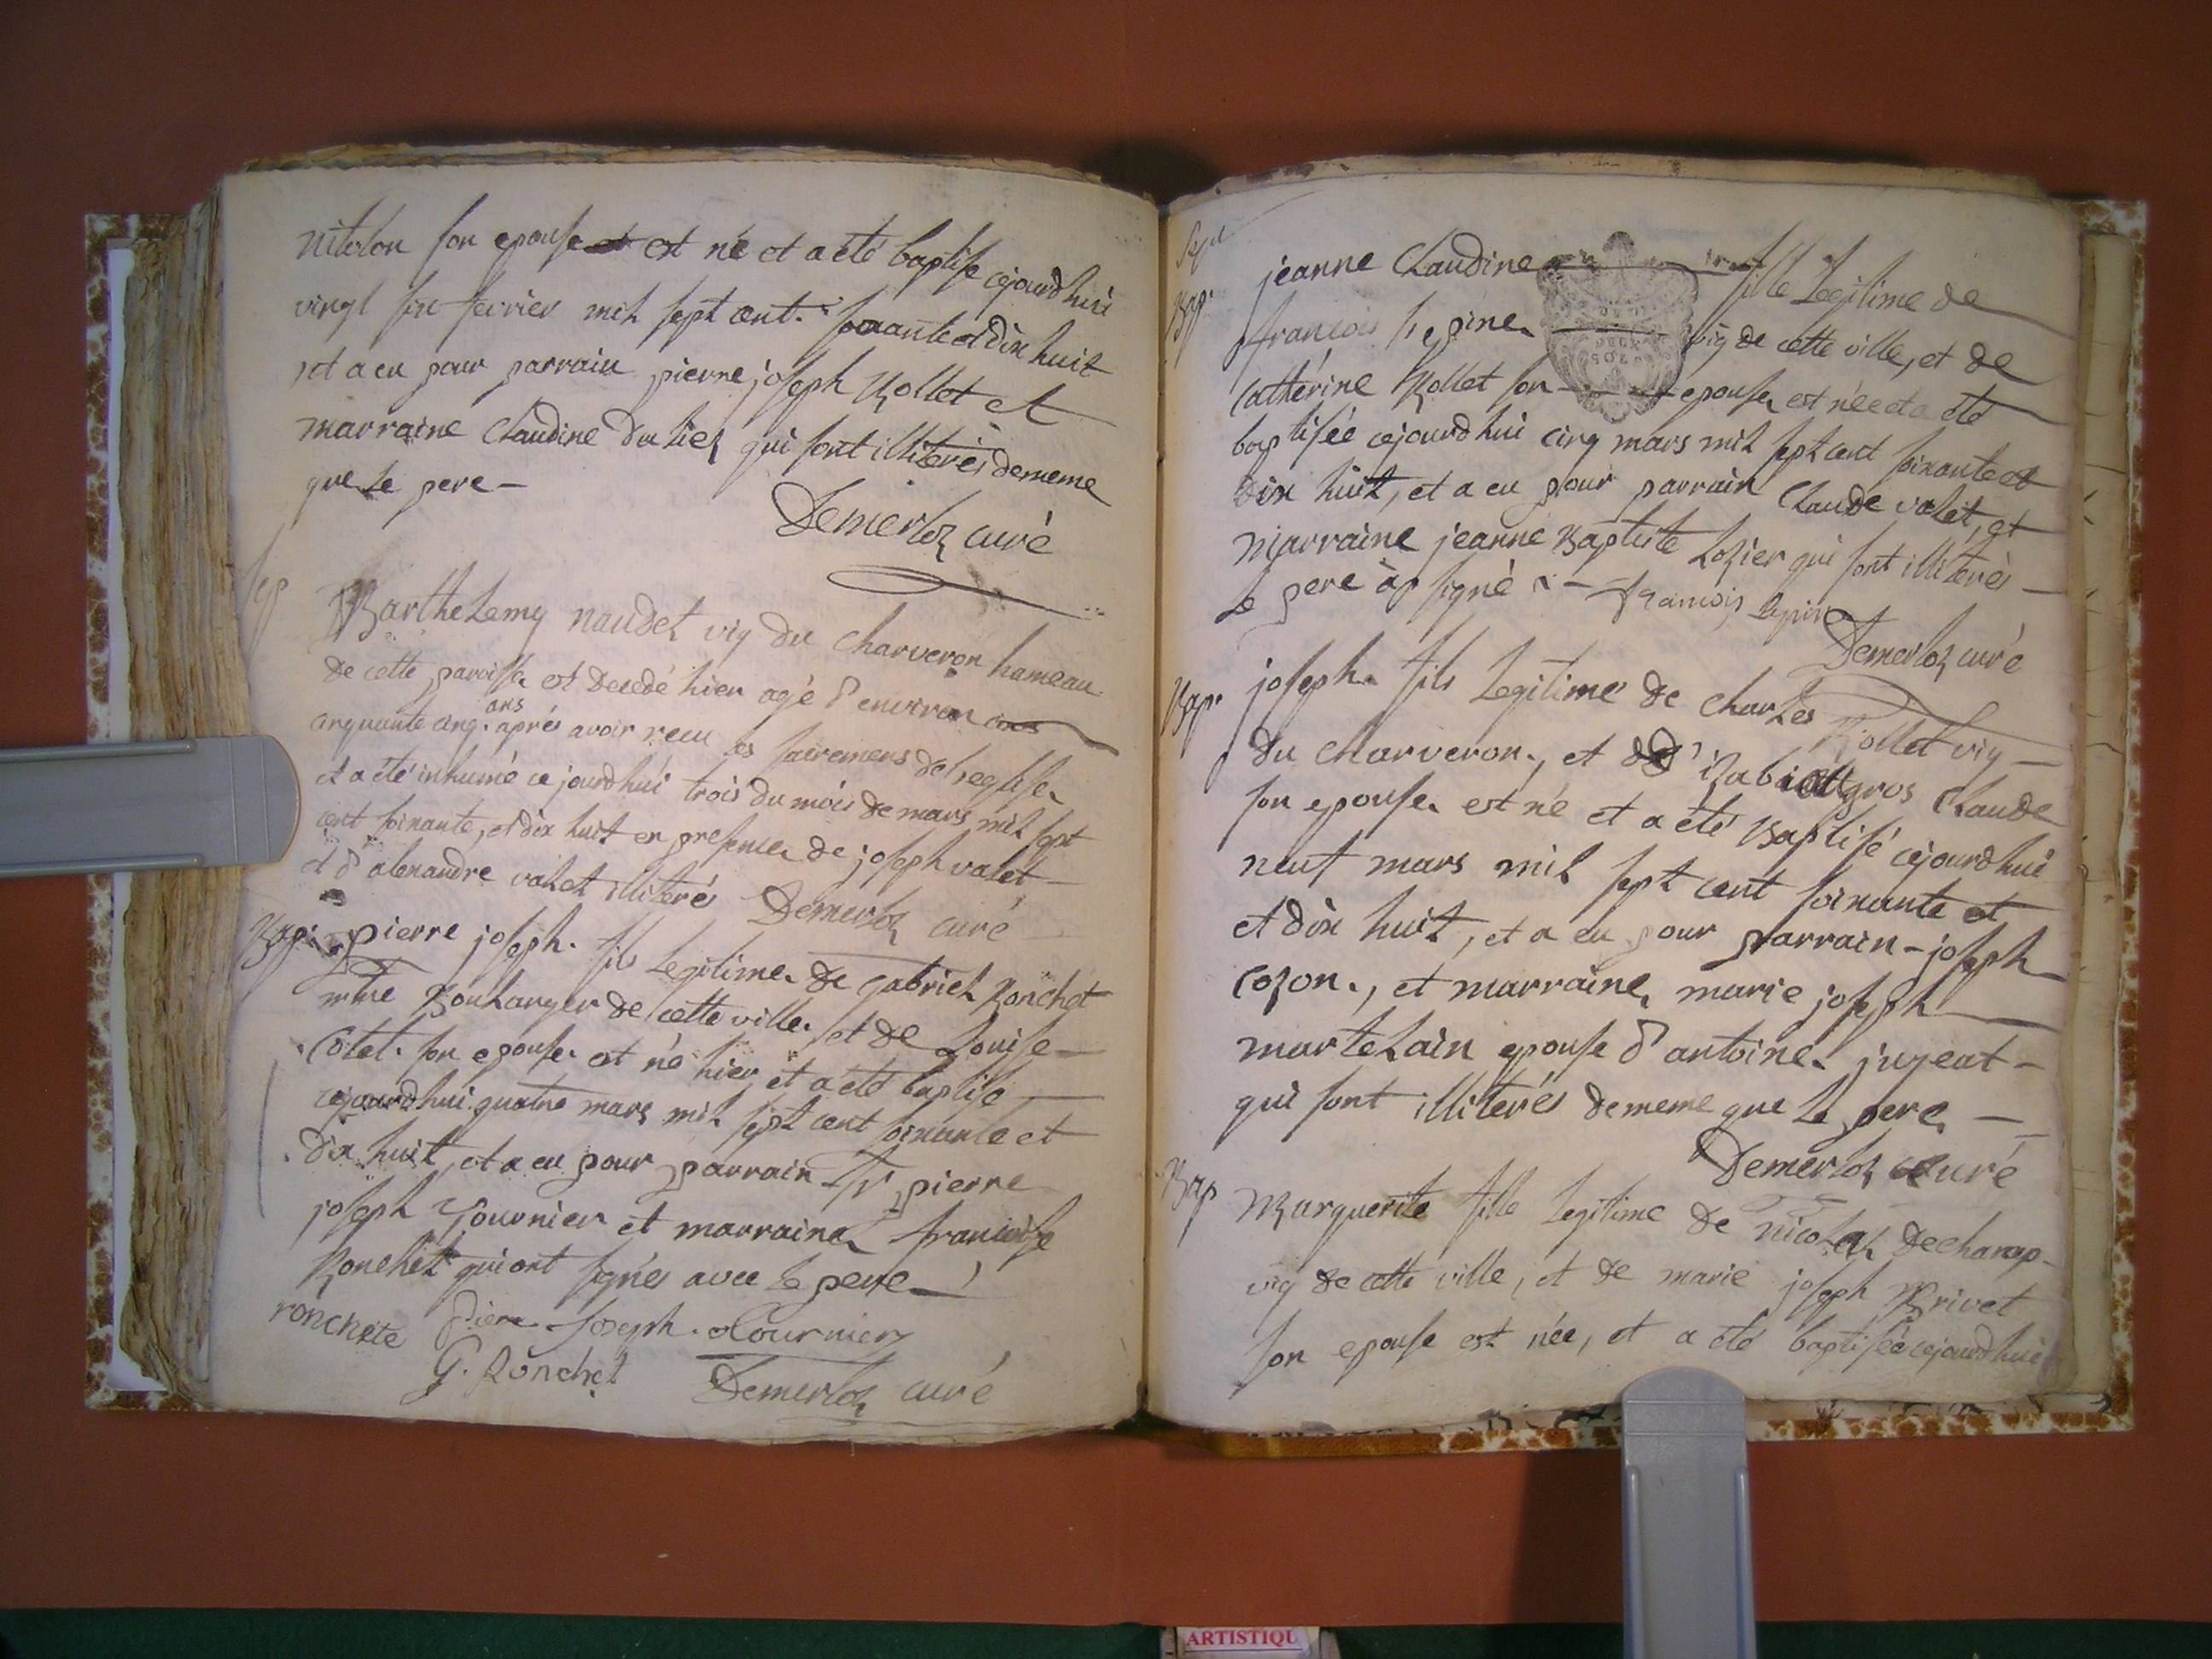 nitolon son epouse est né et a été baptise cejourdhui
vingt six fevrier mil sept cent soixante et dix huit
et a eu pour parrain pierre joseph Rollet et
marraine Claudine du lier qui sont illiterés dememe
que le pere -
Demerloz curé
sep
Barthelemy naudet vig du Charveron hameau
de cette paroisse est decedé hier agé d'environ
cinquante cinq ans aprés avoir recu les sacremens de l'eglise
et a été inhumé ce jourdhui trois du mois de mars mil sept
cent soixante, et dix huit en presence de joseph valet
et d'alexandre valet illiterés Demerloz curé
Bap. pierre joseph fils Legitime de Gabriel Ronchet
mtre Boulanger de cette ville et de Louise
Cotet son epouse est né hier, et a été baptise
cejourdhui quatre mars mil sept cent soixante et
dix huit, et a eu pour parrain Sr pierre
joseph fournier et marraine francoise
Ronchet qui ont signés avec le pere
ronchete Piere Joseph fournier
G. Ronchet Demerloz curé
Sepu
Bap. jeanne Claudine fille Legitime de
francois Lepine vig de cette ville, et de
Catherine Rollet son epouse est née et a été
baptisée cejourdhui cinq mars mil sept cent soixante et
dix huit, et a eu pour parrain Claude valet, et
Marraine jeanne Baptiste Lozier qui sont illiterés -
Le pere a signé - francois Lepine
Demerloz curé
Bap. joseph fils Legitime de Charles Rollet vig -
du Charveron, et d'izabiau gros Claude
son epouse est né et a été Baptisé cejourdhui
neuf mars mil sept cent soixante et
et dix huit, et a eu pour parrain - joseph
Cozon, et marraine marie joseph
martelain epouse d'antoine jugeat -
qui sont illiterés dememe que le pere -
Demerloz curé
Bap Marguerite fille Legitime de nicolas Dechamp
vig de cette ville, et de marie joseph Brivet
son epouse est née, et a été baptisée cejourdhui
ARTISTIQU